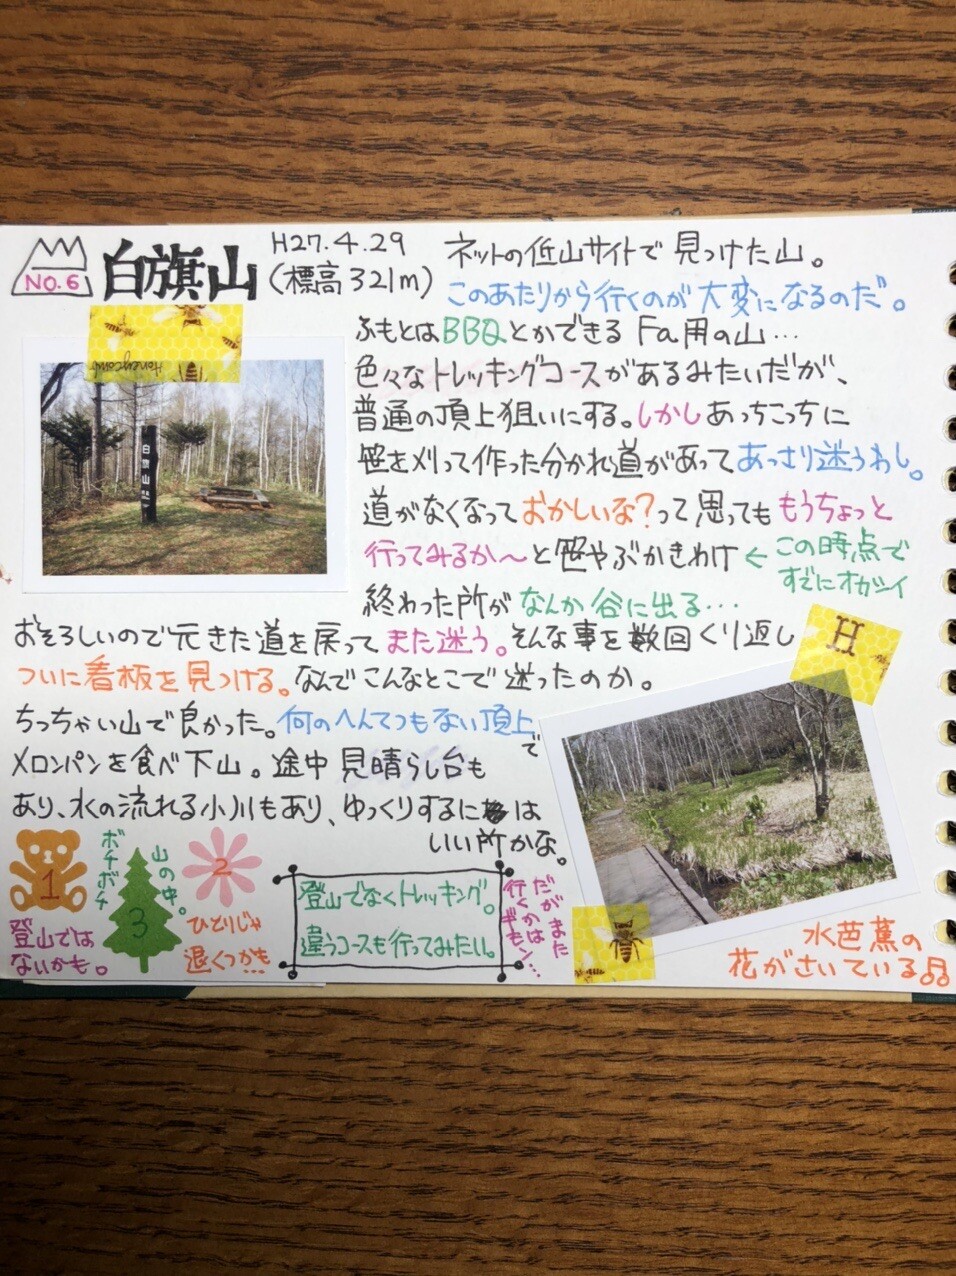 NO.6
白旗山
H27.4.29
(標高321m)
ネットの低山サイトで見つけた山。
このあたりから行くのが大変になるのだ。
ふもとはBBQとかできるFa用の山…
色々なトレッキングコースがあるみたいだが、
普通の頂上狙いにする。しかしあっちこっちに
笹を刈って作った分かれ道があってあっさり迷うわし。
道がなくなっておかしいな?って思ってももうちょっと
行ってみるか〜と笹やぶかきわけ←この時点で
すでにオカシイ
終わった所がなんか谷に出る…
おそろしいので元きた道を戻ってまた迷う。そんな事を数回くり返し
ついに看板を見つける。なんでこんなとこで迷ったのか。
ちっちゃい山で良かった。何のへんてつもない頂上で
メロンパンを食べ下山。途中見晴らし台も
あり、水の流れる小川もあり、ゆっくりするには
いい所かな。
Honeycomb
白旗山
H
1
登山では
ないかも。
ボチボチ
3
山の中。
2
ひとりじゃ
退くつかも…
登山でなくトレッキング。
違うコースも行ってみたい。
だがまた
行くかは
ギモン…
水芭蕉の
花がさいている